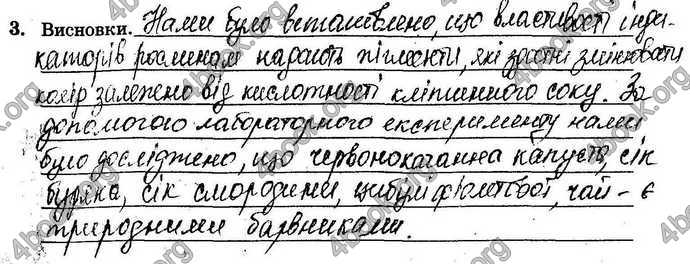 3. Висновки. Нами було встановлено, що властивості інди-
каторів рослинам надають пігменти, які здатні змінювати
колір залежно від кислотності клітинного соку. За
допомогою лабораторного експерименту нами
було досліджено, що червонокачанна капуста, сік
буряка, сік смородини, цибулі фіолетової, чай – є
природними барвниками.
4book.org